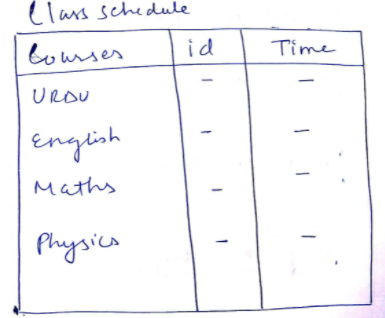 Class schedule
Courses id Time
URDU - -
English - -
Maths - -
Physics - -